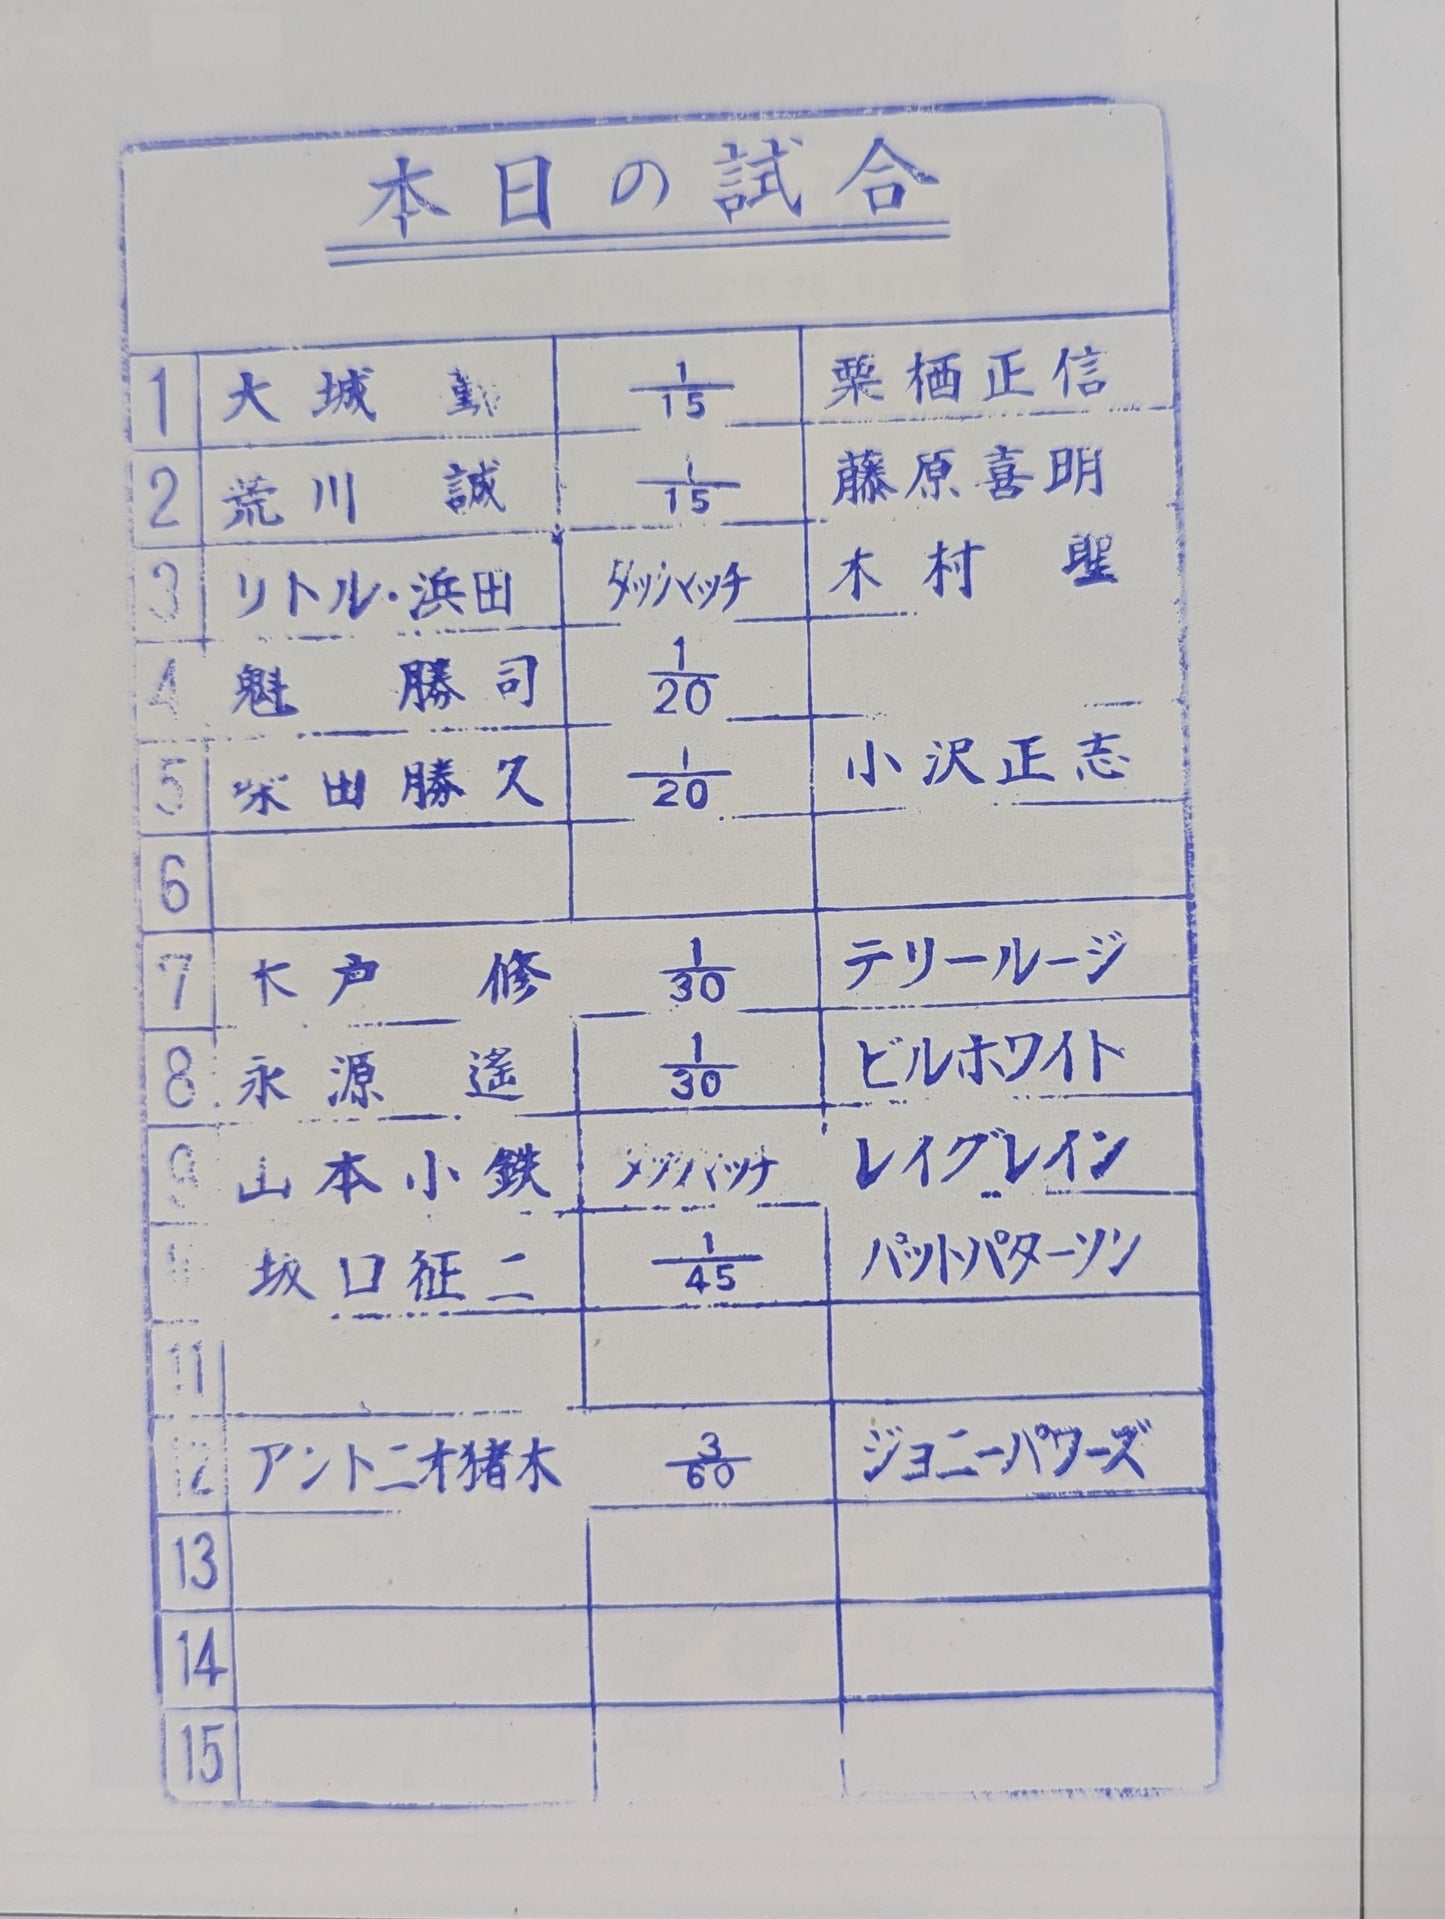 本日の試合
1 大城 勤 1/15 栗栖正信
2 荒川 誠 1/15 藤原喜明
3 リトル・浜田 タッグマッチ 木村 聖
4 魁 勝司 1/20
5 柴田勝久 1/20 小沢正志
6
7 木戸 修 1/30 テリールージ
8 永源 遙 1/30 ビルホワイト
9 山本小鉄 タッグマッチ レイグレイン
坂口征二 1/45 パットパターソン
11
12 アントニオ猪木 3/60 ジョニーパワーズ
13
14
15